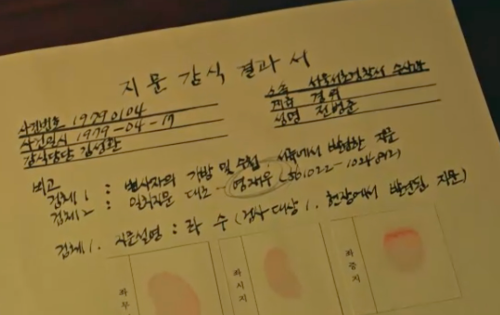 지문 감식 결과서
사건번호 19790104
사건일시 1979-04-17
감식담당 김성환
소속 서울서부경찰서 수사과
계급 경위
성명 전병준
비고
검체 1 : 변사자의 가방 및 수첩, 에서 발견한 지문
검체 2 : 일치지문 대조 - 영재우 (561022-1024812)
검체 1. 지문설명 : 좌 수 (검사 대상 1. 현장에서 발견된 지문)
좌무
좌시지
좌중지